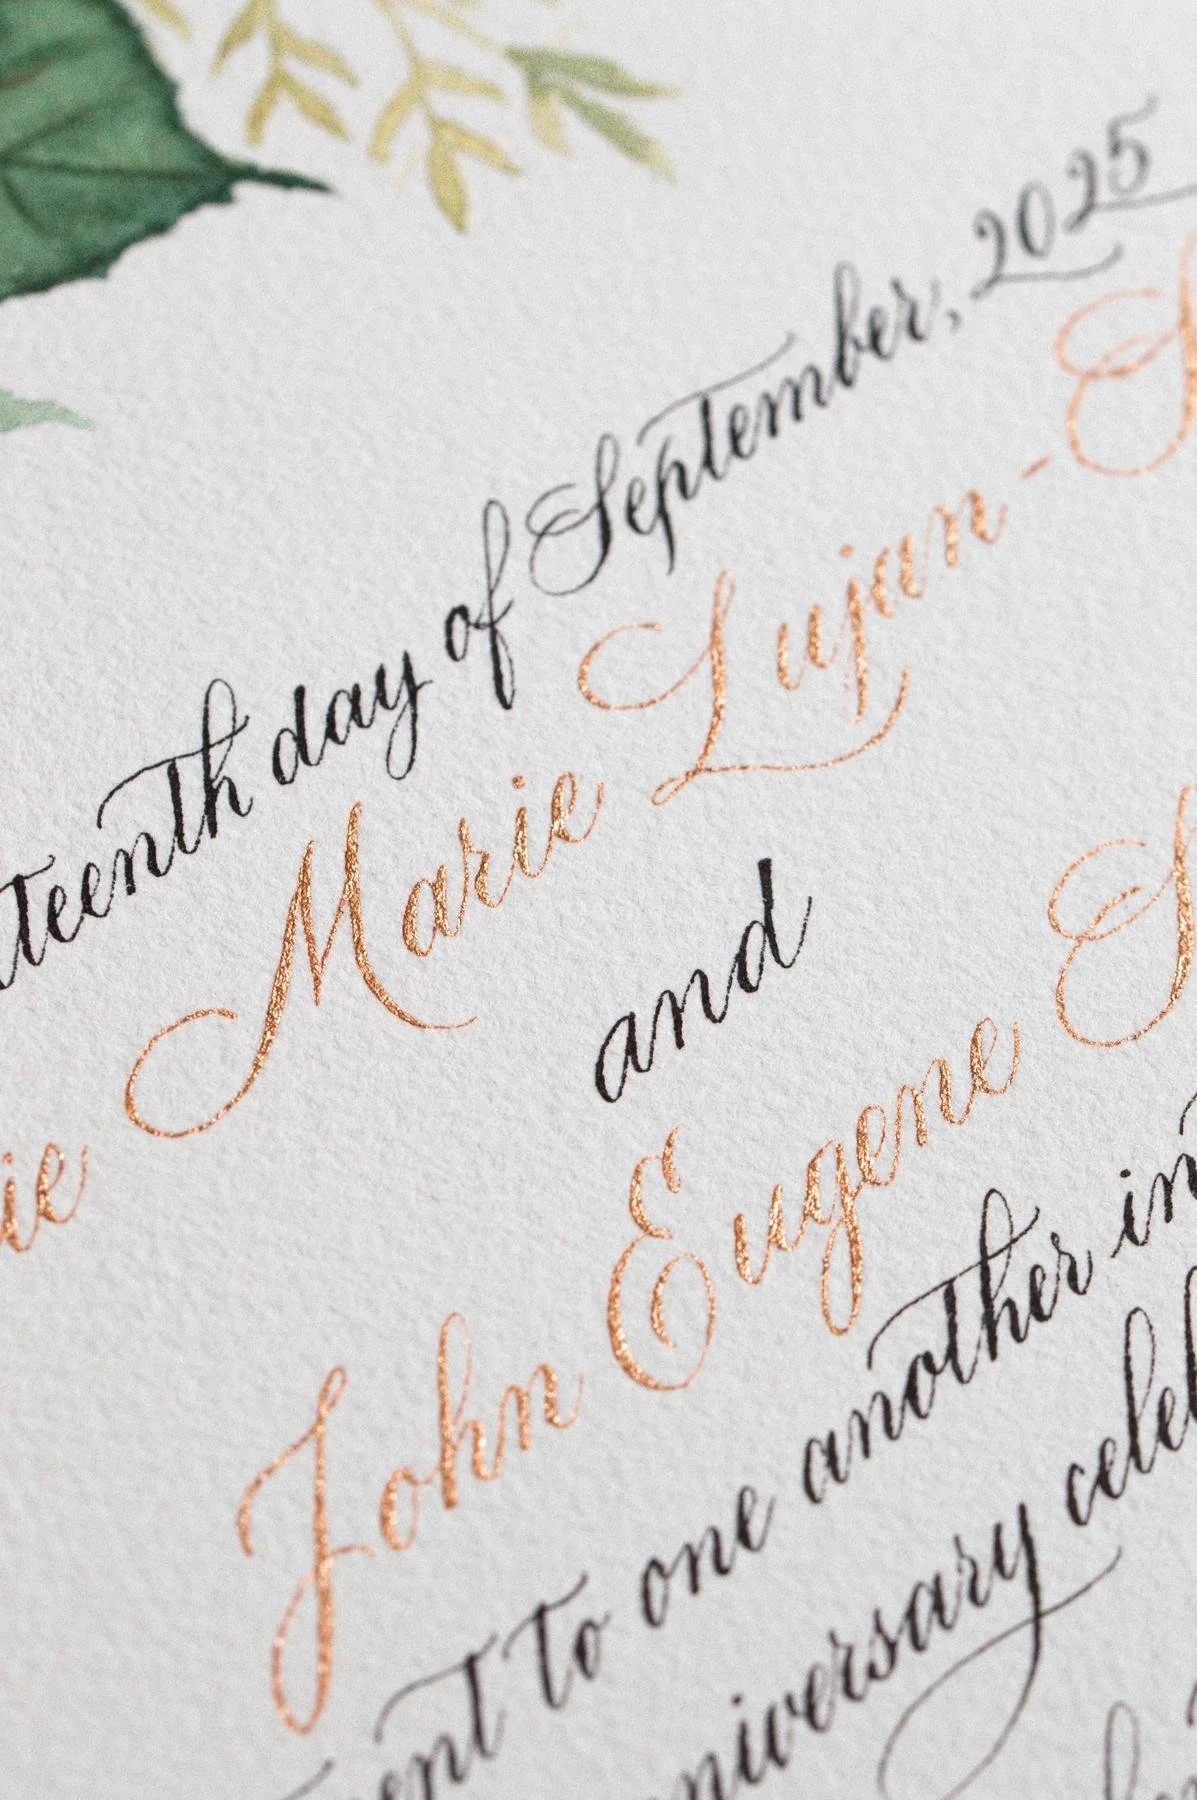 teenth day of September, 2025
ie Marie Lujan - S
and
John Eugene S
ent to one another in
niversary celeb